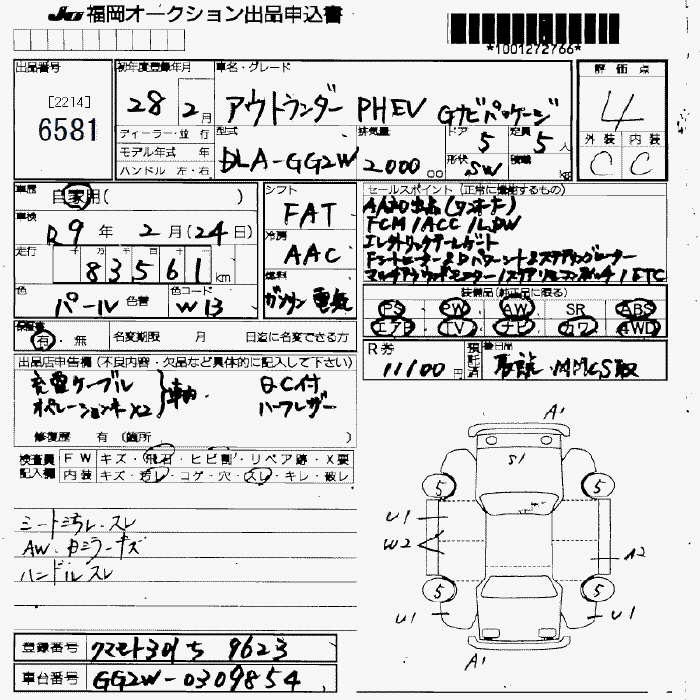 JU福岡オークション出品申込書
*1001272766*
出品番号
[2214]
6581
初年度登録年月
28年2月
車名・グレード
アウトランダー PHEV Gナビパッケージ
評価点
4
外装 内装
C C
ディーラー・並行
モデル年式 年
ハンドル 左・右
型式
DLA-GG2W
排気量
2000cc
ドア
5
形状
SW
定員
5人
積載
kg
車歴
自家用( )
車検
R9年2月(24日)
走行
83561km
色
パール
色替
色コード
W13
シフト
FAT
冷房
AAC
燃料
ガソリン電気
セールスポイント(正常に機能するもの)
AA初出品(ワンオーナー)
FCM/ACC/LDW
エレクトリックテールゲート
/ETC
装備品(純正品に限る)
PS PW AW SR ABS
エアB TV ナビ カワ 4WD
保証書
有・無
名変期限 月 日迄に名変できる方
R券
11100円
預託済
後日品
取説 MMCS取
出品店申告欄(不良内容・欠品など具体的に記入して下さい)
充電ケーブル
オペレーションキー×2
車内
QC付
ハーフレザー
修復歴 有(箇所 )
検査員記入欄
FW キズ・飛石・ヒビ割・リペア跡・X要
内装 キズ・汚レ・コゲ・穴・スレ・キレ・破レ
シート汚レ、スレ
AW、Bミラーキズ
ハンドルスレ
A1
S1
5 5
U1
W2
A2
5 5
U1 U1
A1
登録番号
クマモト301ち 9623
車台番号
GG2W-0309854